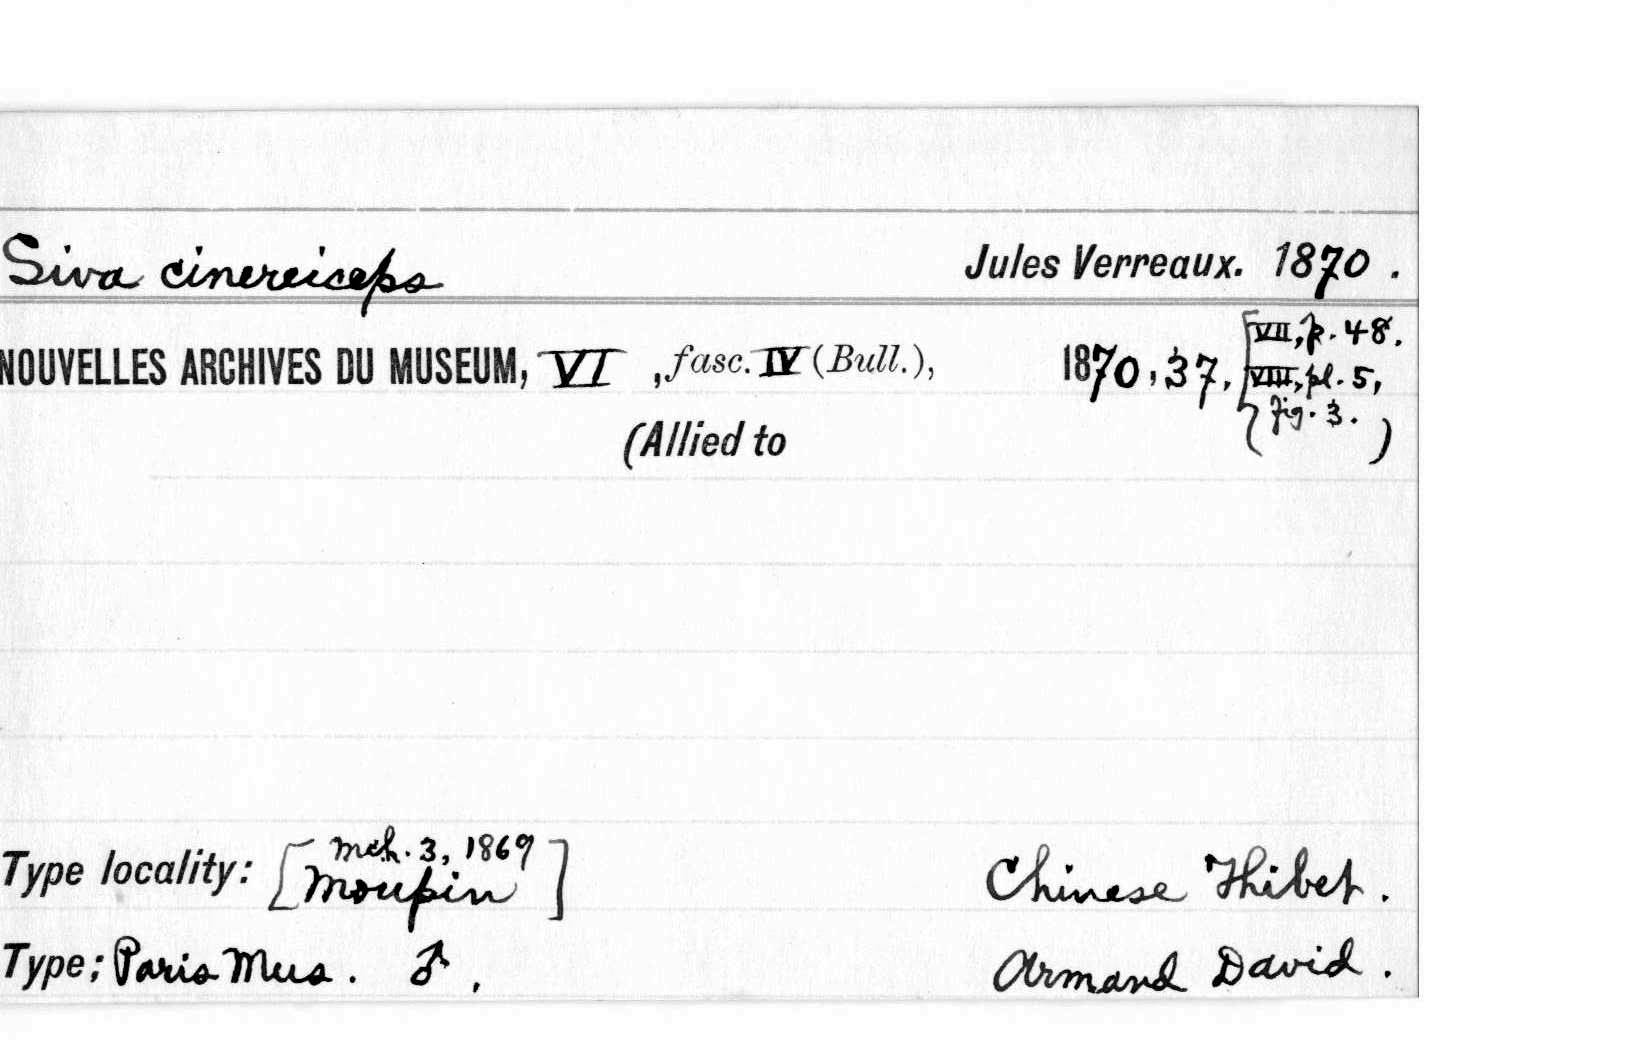 Siva cinereiceps Jules Verreaux. 1870 .
NOUVELLES ARCHIVES DU MUSEUM, VI , fasc. IV (Bull.), 1870, 37, [VII, p. 48.
VIII, pl. 5,
fig. 3.
(Allied to )
Type locality: [mch. 3, 1869
Moupin] Chinese Thibet .
Type; Paris Mus . ♂ , Armand David .